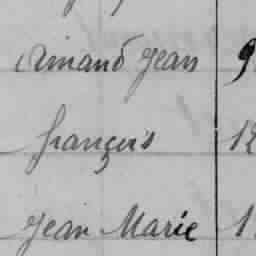 Armand Jean 9
françois 12
Jean Marie 1